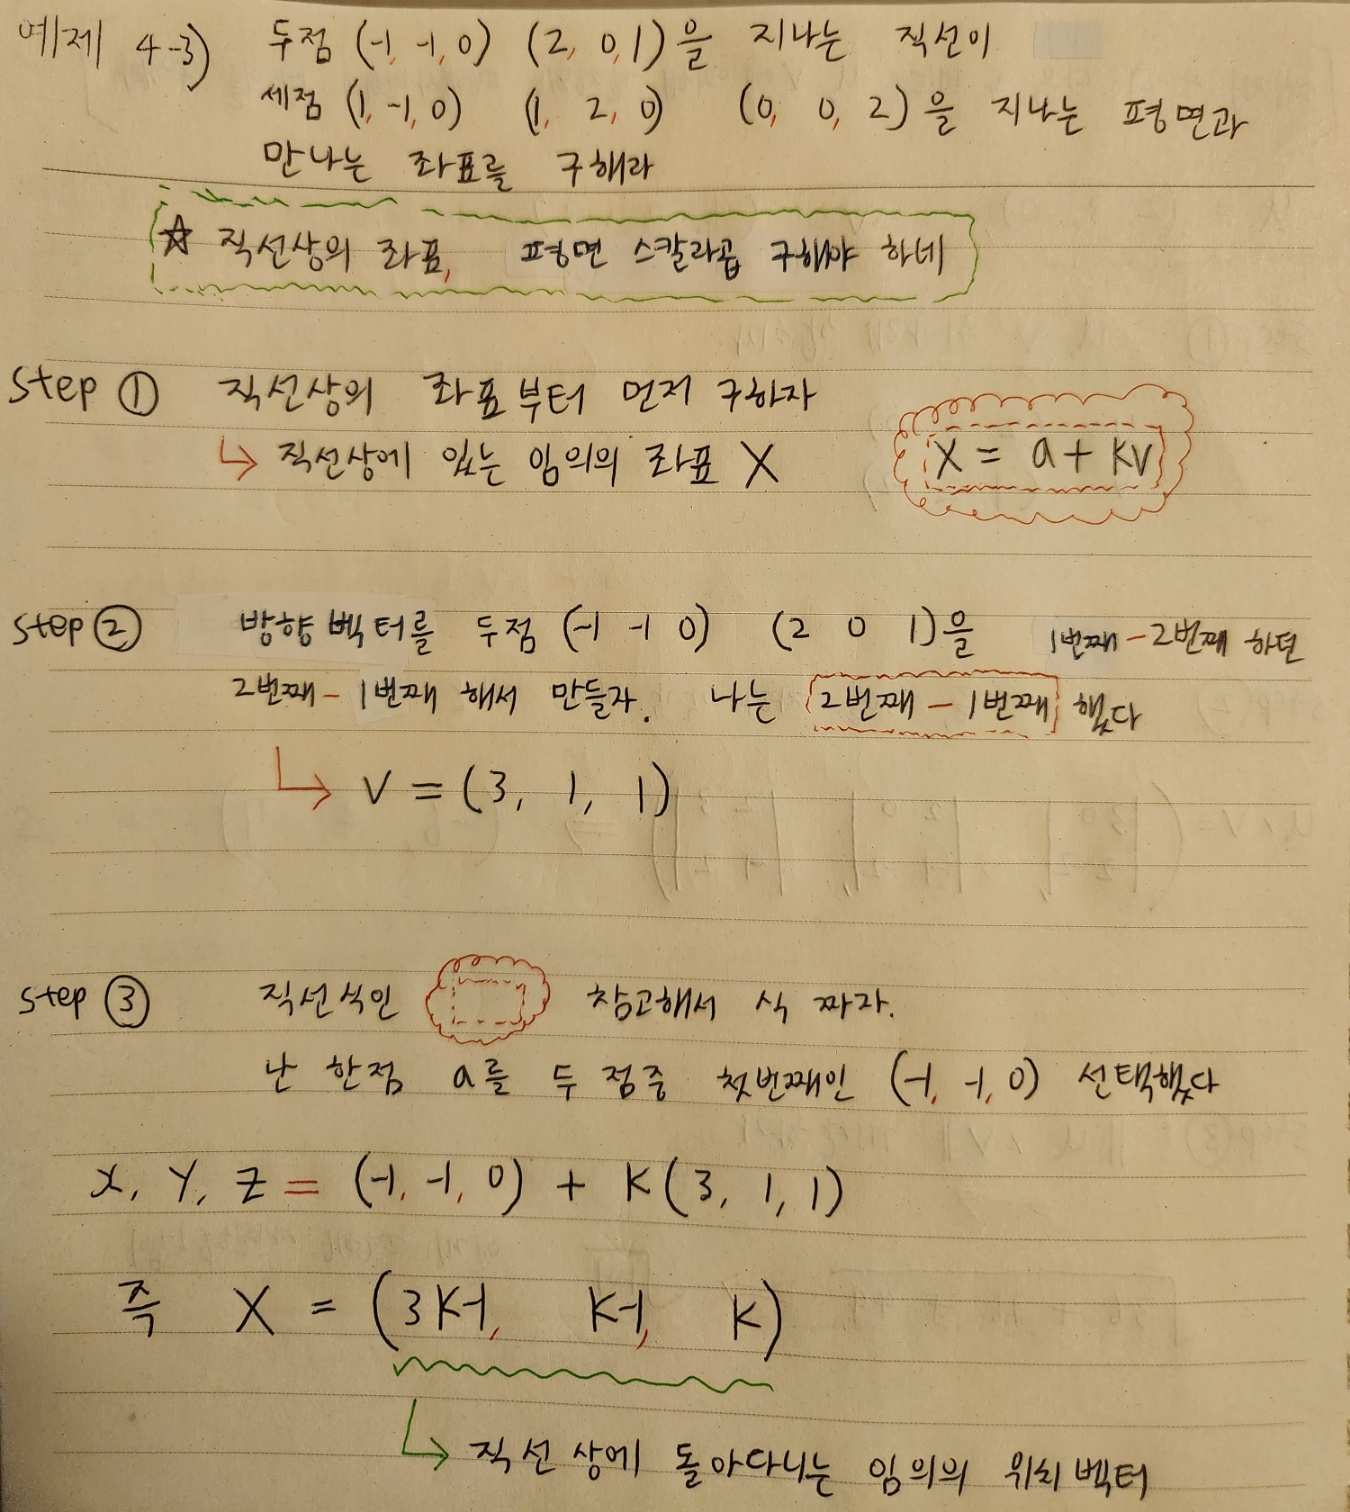 예제 4-3) 두점 (-1, -1, 0) (2, 0, 1)을 지나는 직선이
세점 (1, -1, 0) (1, 2, 0) (0, 0, 2)을 지나는 평면과
만나는 좌표를 구해라
☆ 직선상의 좌표, 평면 스칼라곱 구해야 하네
step ① 직선상의 좌표부터 먼저 구하자
↳ 직선상에 있는 임의의 좌표 X X = a + kv
step ② 방향벡터를 두점 (-1 -1 0) (2 0 1)을 1번째-2번째 하던
2번째-1번째 해서 만들자. 나는 2번째-1번째 했다
↳ V = (3, 1, 1)
step ③ 직선식인 참고해서 식 짜자.
난 한점 a를 두 점중 첫번째인 (-1, -1, 0) 선택했다
x, y, z = (-1, -1, 0) + k(3, 1, 1)
즉 X = (3k-1, k-1, k)
↳ 직선상에 돌아다니는 임의의 위치벡터